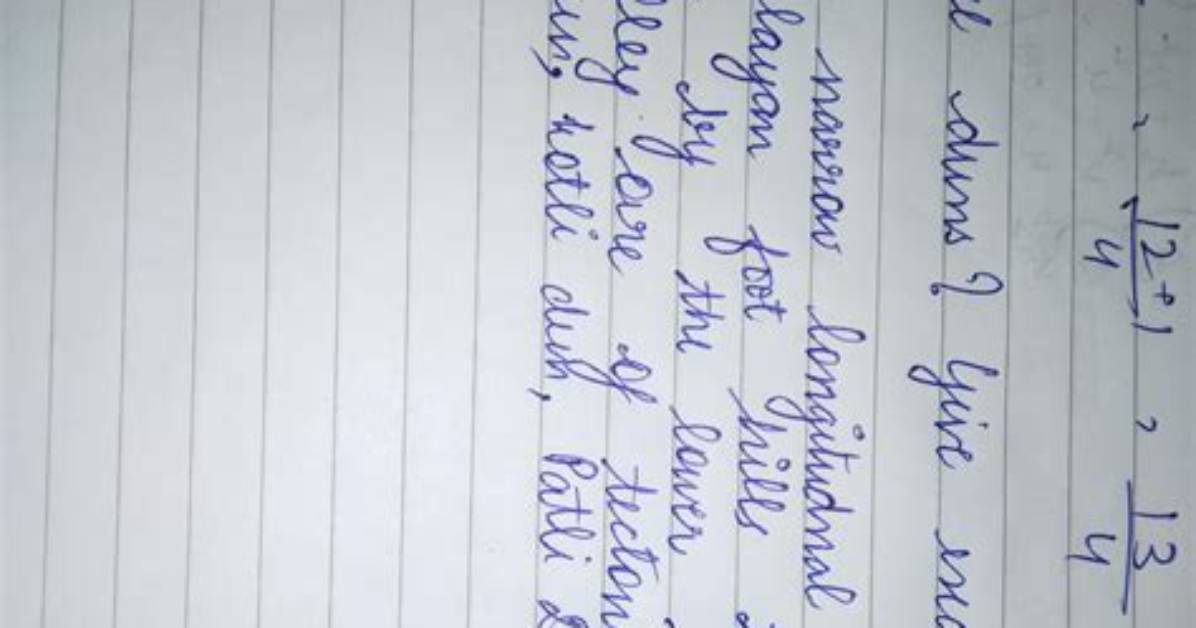 12+1/4 , 13/4
duns? Give
narrow longitudnal
layan foot hills
by the lower
lley are of tecton
un, kotli duh, Patli